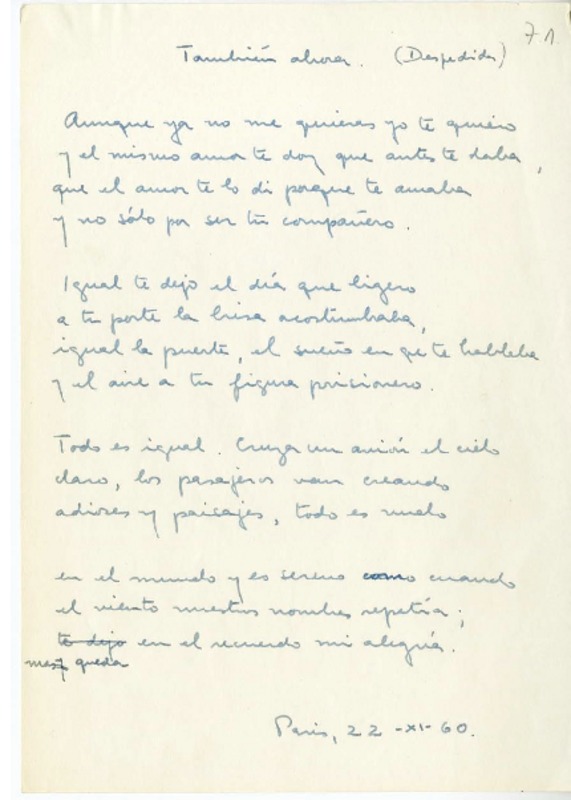 71
También ahora. (Despedida)
Aunque ya no me quieras yo te quiero
y el mismo amor te doy que antes te daba,
que el amor te lo di porque te amaba
y no sólo por ser tu compañero.
Igual te dejo el día que ligero
a tu porte la brisa acostumbraba,
igual la puerta, el sueño en qe te hablaba
y el aire a tu figura prisionero.
Todo es igual. Cruza un avión el cielo
claro, los pasajeros van creando
adioses y paisajes, todo es vuelo
en el mundo y es sereno como cuando
el viento nuestros nombres repetía;
te dejo en el recuerdo mi alegría.
queda
París, 22-XI-60.